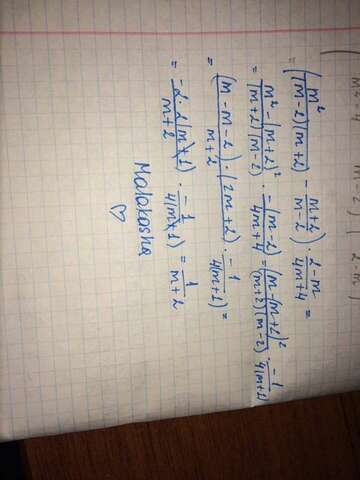 = (m²/((m-2)(m+2)) - (m+2)/(m-2)) · (2-m)/(4m+4) =
= (m²-(m+2)²)/((m+2)(m-2)) · (-(m-2))/(4m+4) = (m-(m+2)²)/((m+2)(m-2)) · (-1)/(4(m+1))
= ((m-m-2)·(2m+2))/(m+2) · (-1)/(4(m+1)) =
= (-2·2(m+1))/(m+2) · (-1)/(4(m+1)) = 1/(m+2)
Malakasha
♡